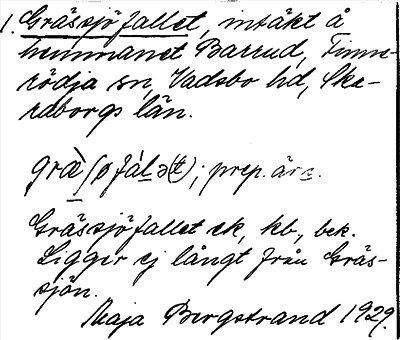 1. Grässjöfallet, intäkt å
hemmanet Barrud, Finne-
rödja sn, Vadsbo hd, Ska-
raborgs län.
græ̀ʃøfálət; prep. är i.
Grässjöfallet ek, kb, bek.
Ligger ej långt från Gräs-
sjön.
Maja Bergstrand 1929.